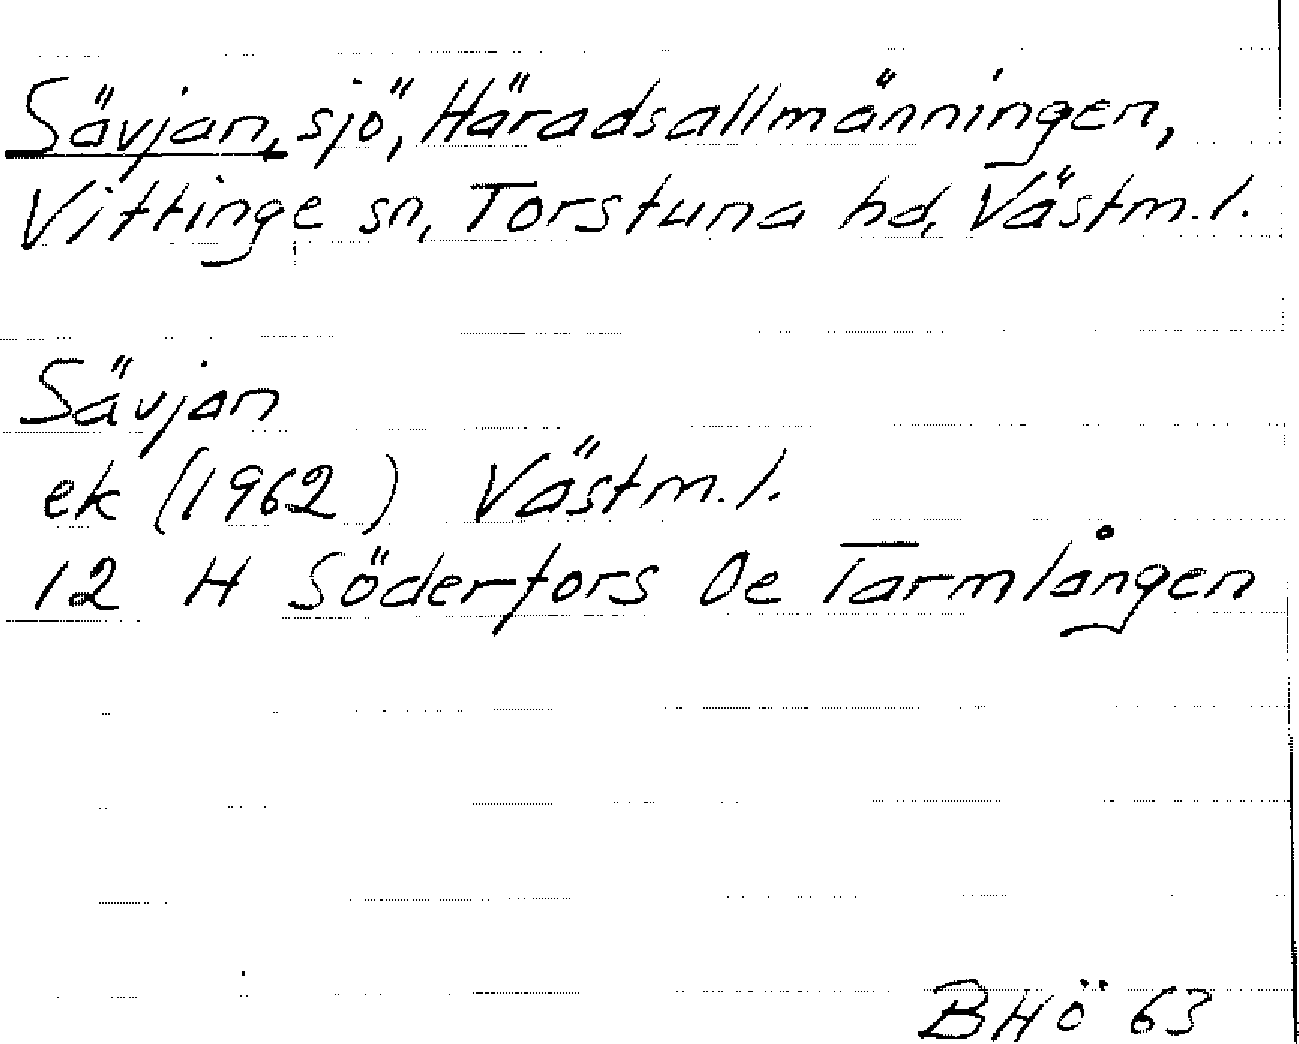 Sävjan, sjö, Häradsallmänningen,
Vittinge sn, Torstuna hd, Västm.l.
Sävjan
ek (1962) Västm.l.
12 H Söderfors 0e Tarmlången
BHÖ 63